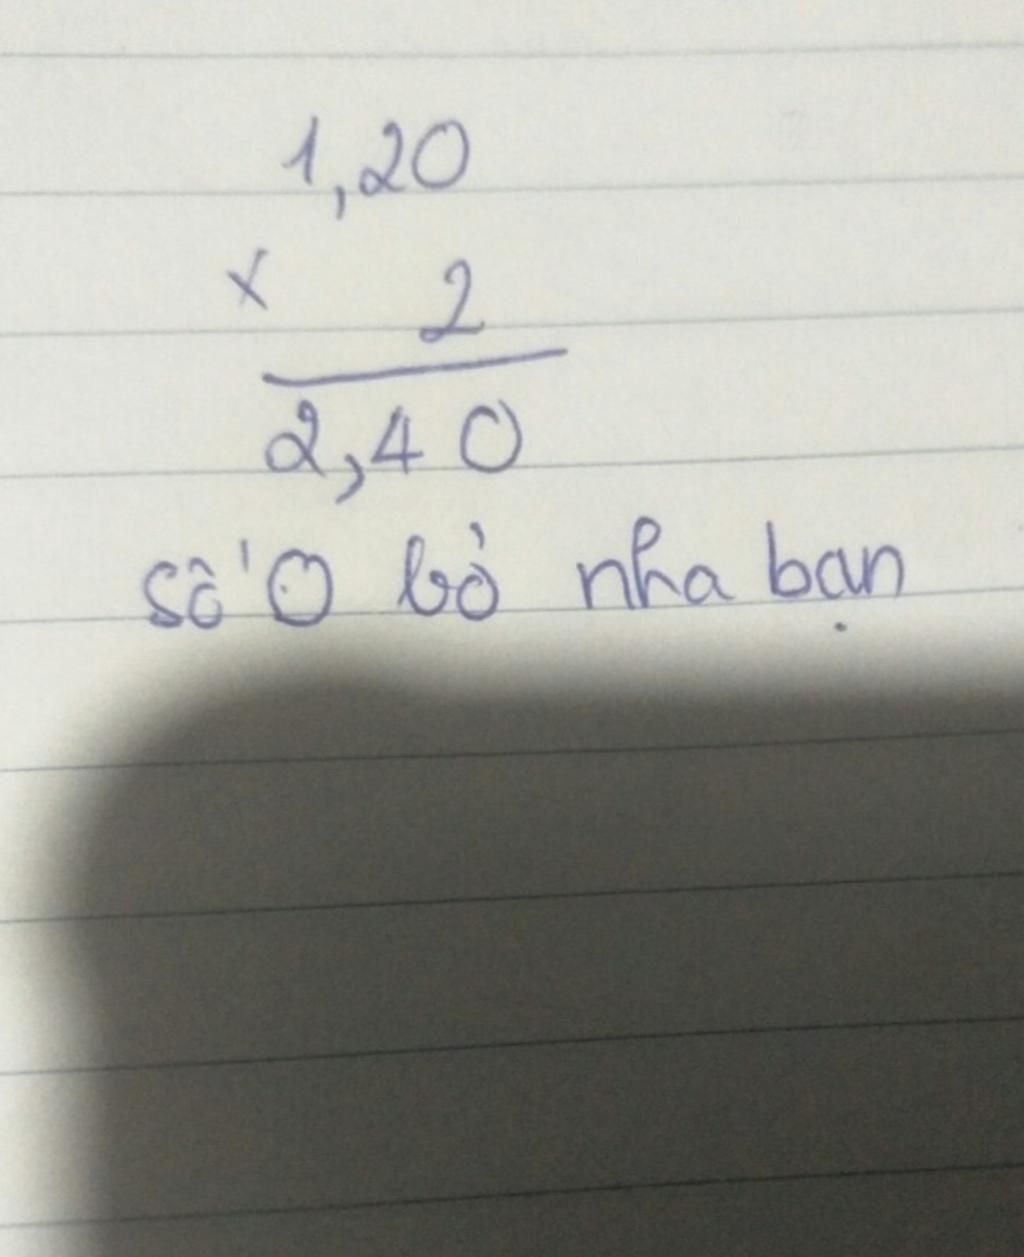 1,20
x 2
2,40
số 0 bỏ nha bạn